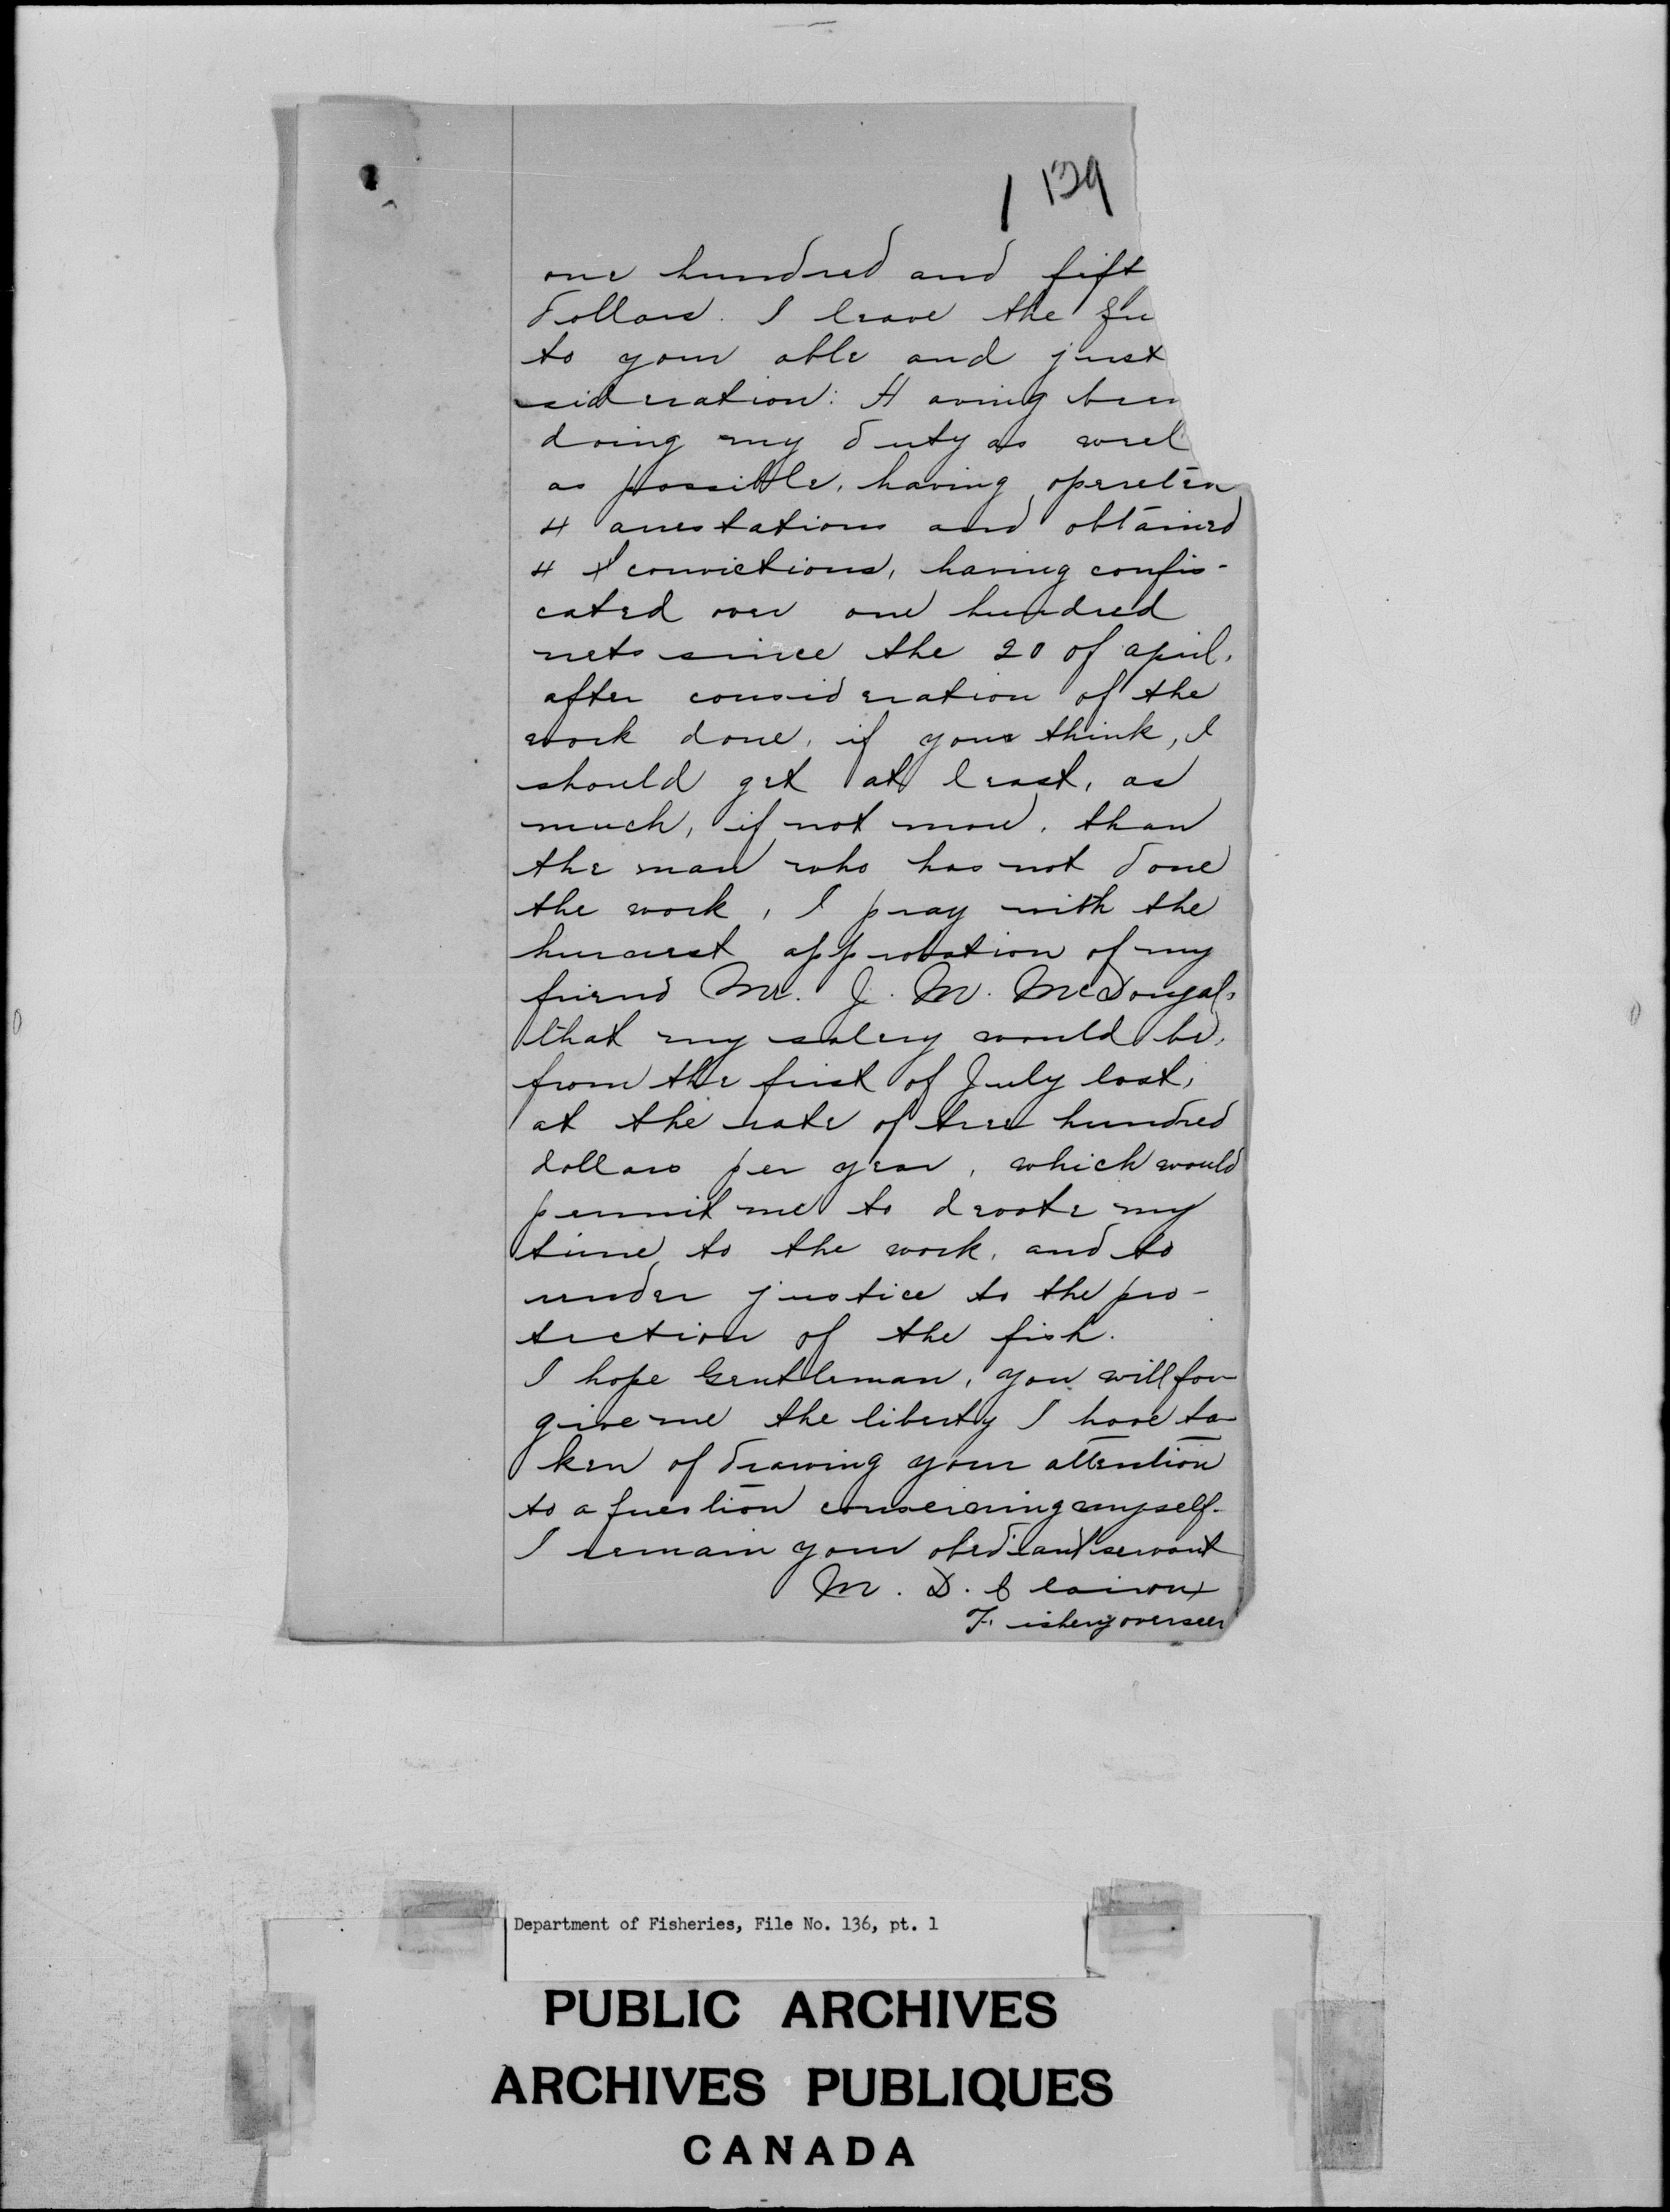 1 129
one hundred and fift
dollars. I leave the qu
to your able and just
sideration: Having been
doing my duty as well
as possible, having opereten
4 arrestations and obtained
4 convictions, having confis-
cated over one hundred
nets since the 20 of april,
after consideration of the
work done, if your think, I
should get at least, as
much, if not more, than
the man who has not done
the work, I pray with the
approbation of my
friend Mr. J. M. McDougal,
that my salery would be,
from the first of July last,
at the rate of tree hundred
dollars per year, which would
permit me to devote my
time to the work, and to
render justice to the pro-
tection of the fish.
I hope Gentleman, you will for
give me the liberty I have ta
ken of drawing your attention
to a question conserning myself.
I remain your obediant servant
M. D. Clairoux
Fishery overseer
Department of Fisheries, File No. 136, pt. 1
PUBLIC ARCHIVES
ARCHIVES PUBLIQUES
CANADA